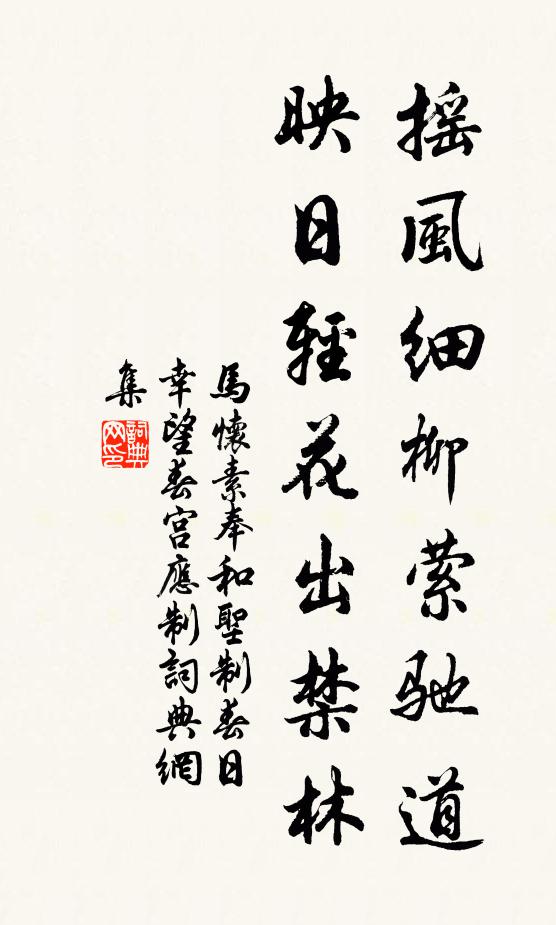 搖風細柳縈馳道
映日輕花出禁林
馬懷素奉和聖制春日
幸望春宮應制詞典網
集
詞典
网印